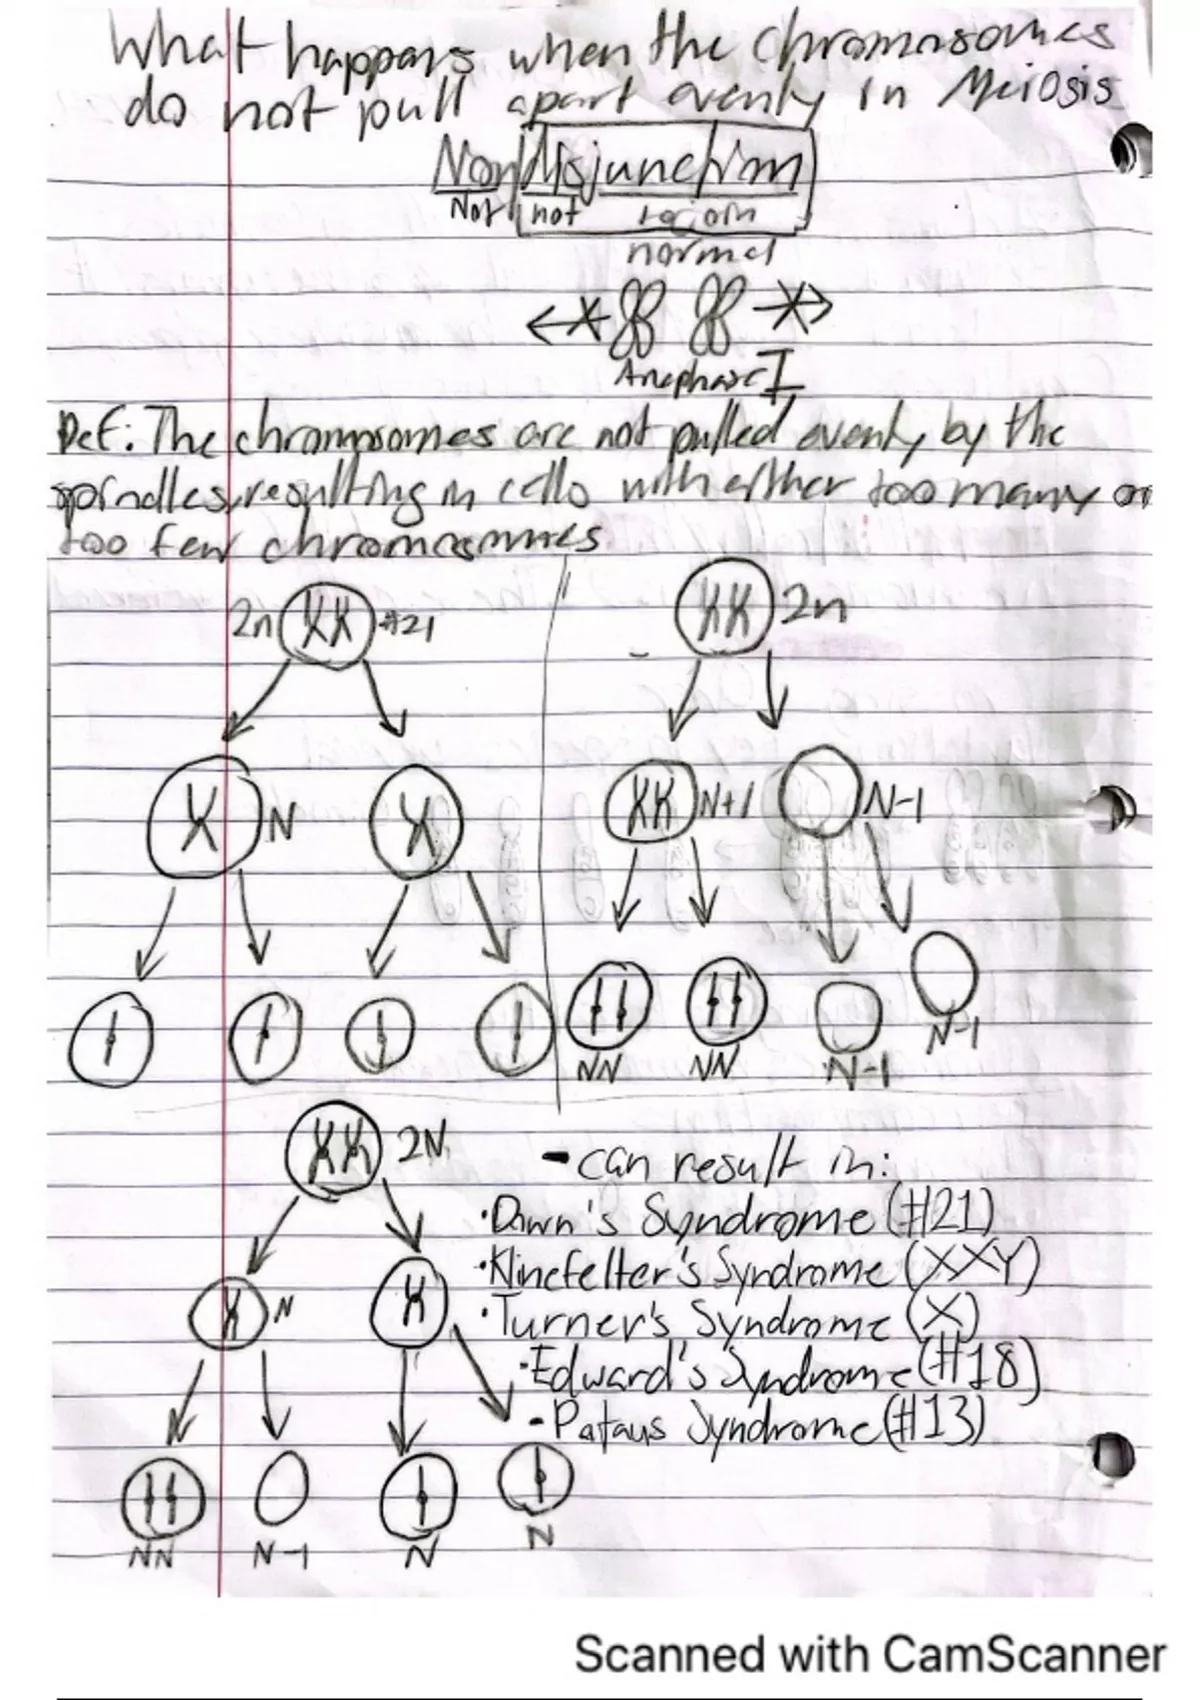 What happens when the chromosomes
do not pull apart evenly in Meiosis
Nondisjunction
Not not rejoin
normal
Anaphase I
Def: The chromosomes are not pulled evenly by the
spindles, resulting in cells with either too many or
too few chromosomes
2n XX #21
XX 2n
X N X
XX N+1 N-1
NN NN N-1 N-1
XX 2N
- can result in:
• Down's Syndrome (#21)
• Klinefelter's Syndrome (XXY)
X N X
• Turner's Syndrome (X)
• Edward's Syndrome (#18)
- Pataus Syndrome (#13)
NN N-1 N N
Scanned with CamScanner